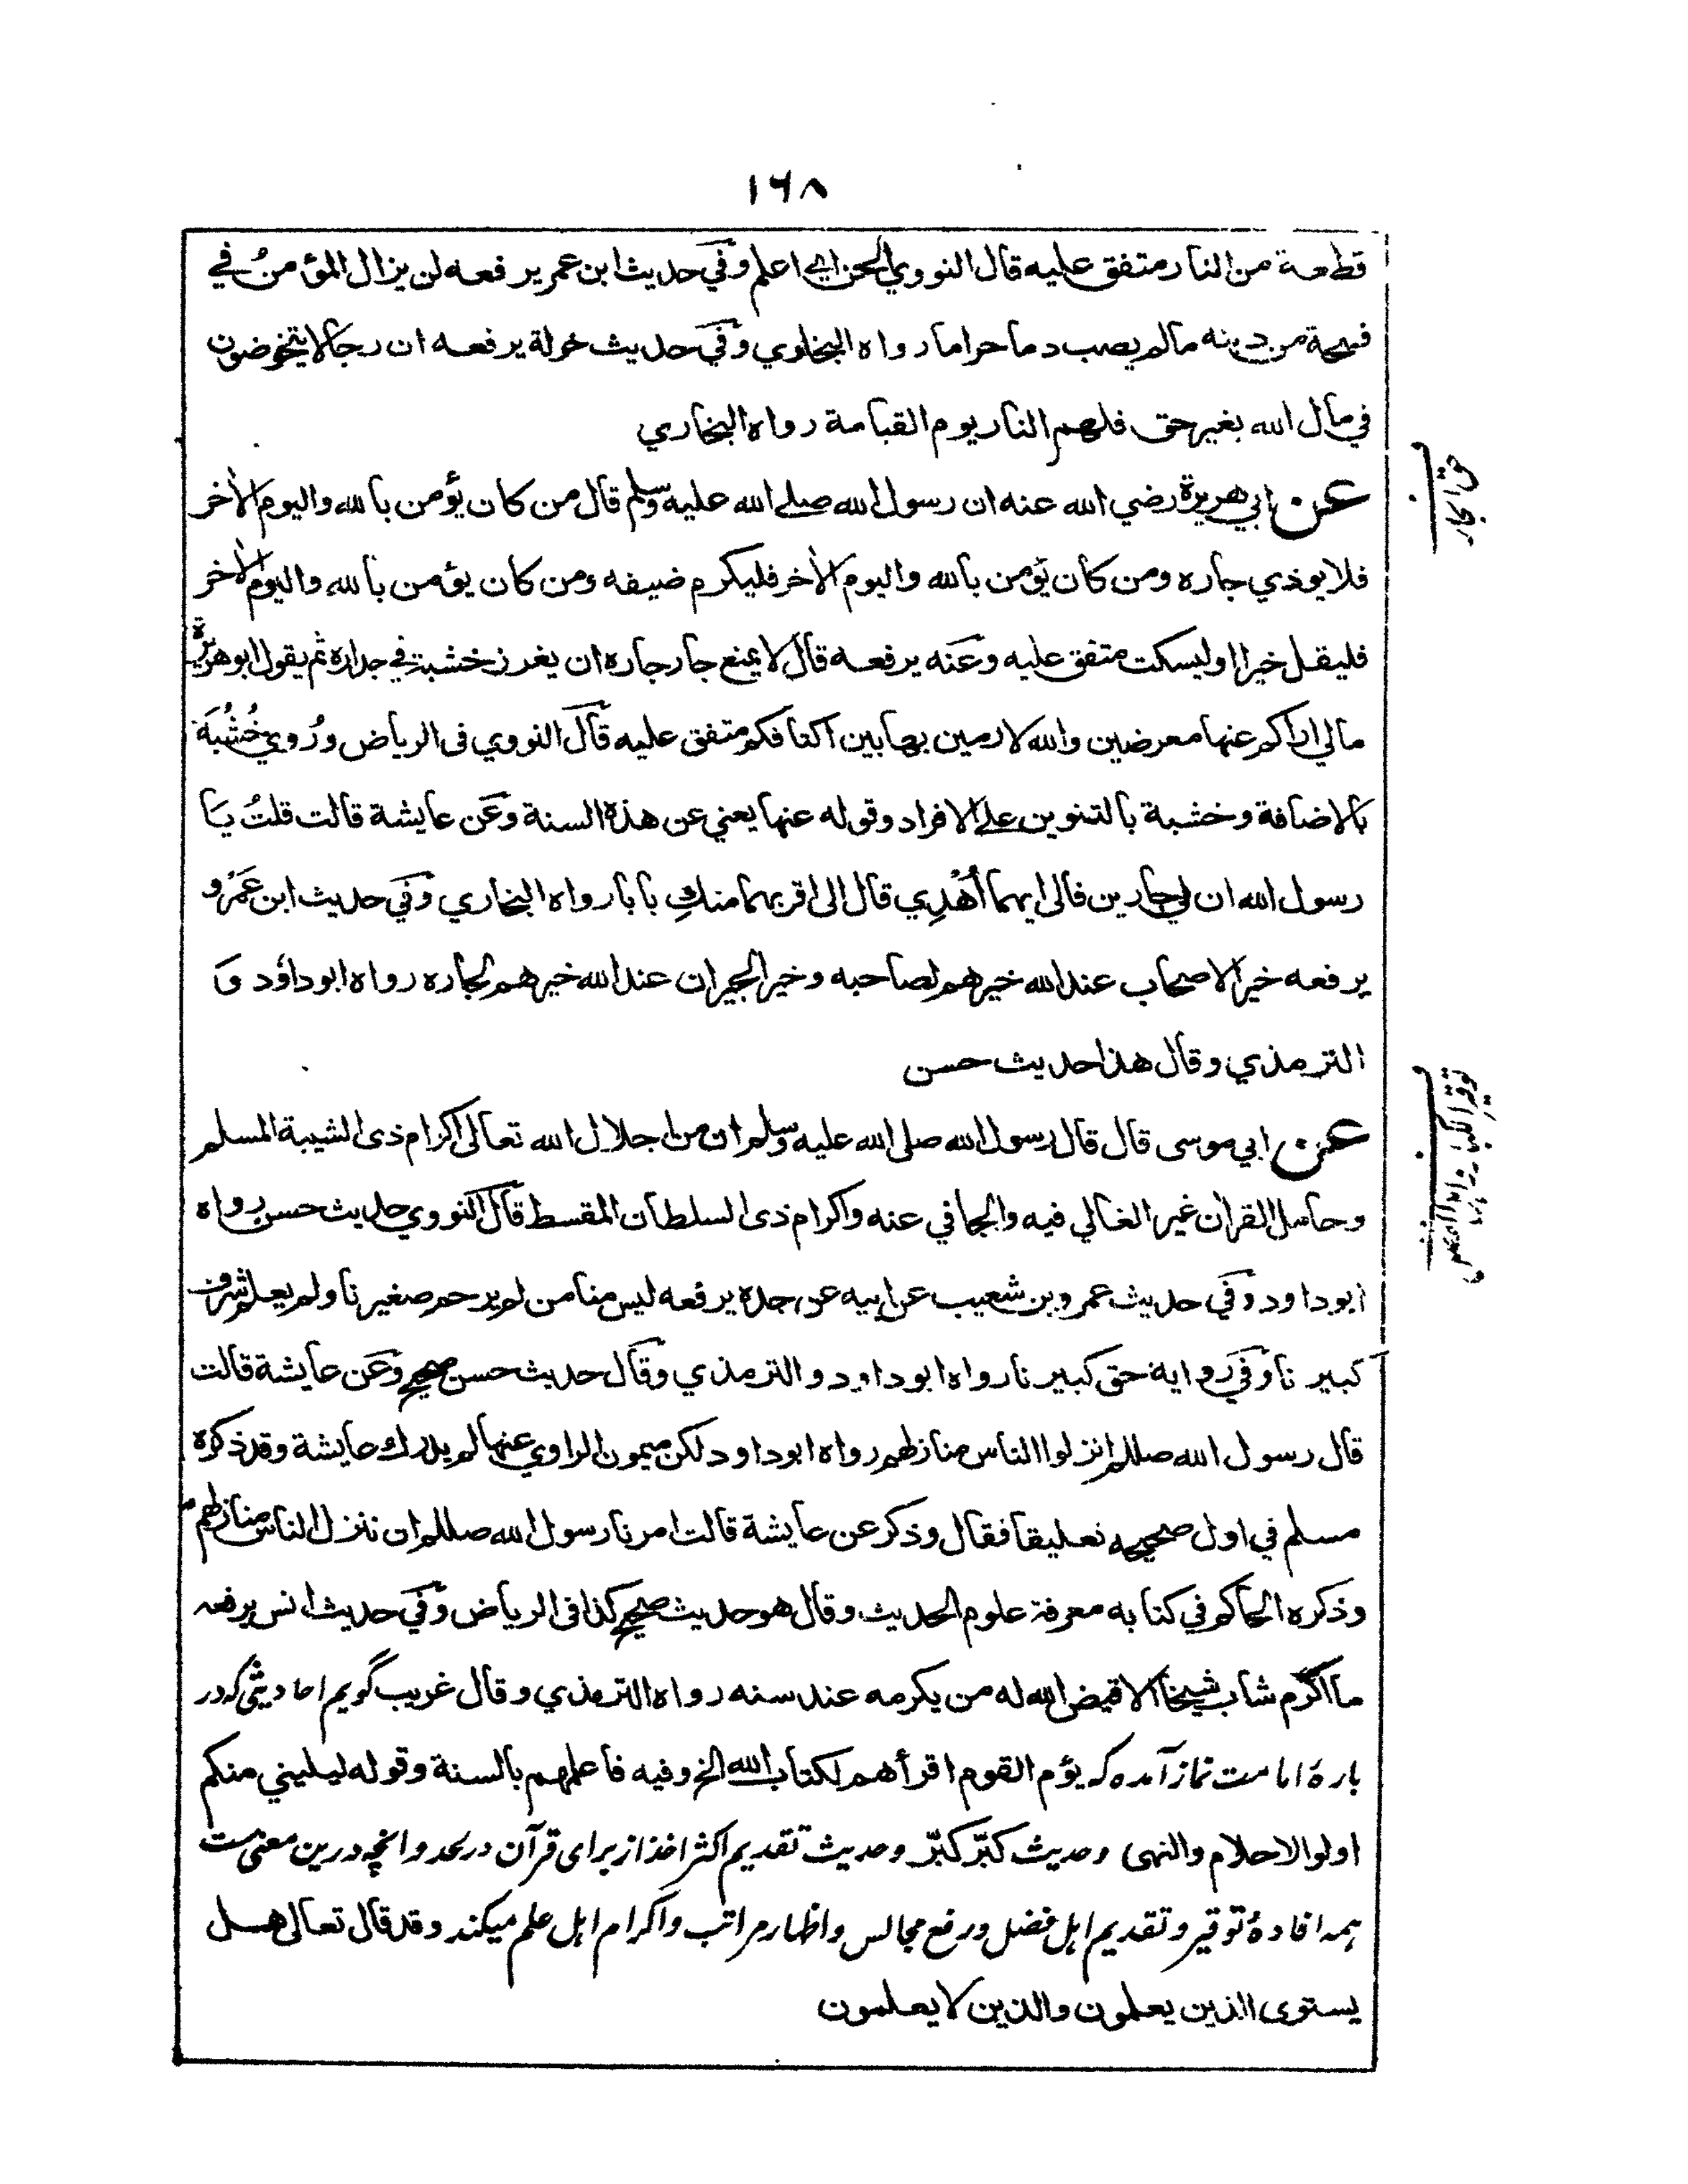 ١٦٨
قطعة من النار متفق عليه قال النووي الحن اي اعلم وفي حديث ابن عمر يرفعه لن يزال المؤمنُ في
فسحة من دينه مالم يصب دما حراما رواه البخاري وفي حديث خولة يرفعه ان رجالا يتخوضون
في مال الله بغير حق فلهم النار يوم القيامة رواه البخاري
عن ابي هريرة رضي الله عنه ان رسول الله صلى الله عليه وسلم قال من كان يؤمن بالله واليوم الاٰخر
فلا يوذي جاره ومن كان يؤمن بالله واليوم الاٰخر فليكرم ضيفه ومن كان يؤمن بالله واليوم الاٰخر
فليقل خيرا او ليسكت متفق عليه وعنه يرفعه قال لا يمنع جار جاره ان يغرز خشبة في جداره ثم يقول ابو هريرة
مالي اراكم عنها معرضين والله لارمين بها بين اكتافكم متفق عليه قال النووي فى الرياض ورُوي خُشُبَهُ
بالاضافة وخشبة بالتنوين على الافراد وقوله عنها يعني عن هذه السنة وعن عايشة قالت قلتُ يا
رسول الله ان لي جارين فالى ايهما أُهْدِي قال الى اقربهما منكِ بابا رواه البخاري وفي حديث ابن عَمْرو
يرفعه خير الاصحاب عند الله خيرهم لصاحبه وخير الجيران عند الله خيرهم لجاره رواه ابو داؤد و
الترمذي وقال هذا حديث حسن
عن ابي موسى قال قال رسول الله صلى الله عليه وسلم ان من اجلال الله تعالى اكرام ذى الشيبة المسلم
وحامل القران غير الغالي فيه والجافي عنه واكرام ذى السلطان المقسط قال النووي حديث حسن رواه
ابو داود وفي حديث عمرو بن شعيب عن ابيه عن جده يرفعه ليس منا من لم يرحم صغيرنا ولم يعلم شرف
كبيرنا وفي رواية حق كبيرنا رواه ابو داود والترمذي وقال حديث حسن صحيح وعن عايشة قالت
قال رسول الله صللم انزلوا الناس منازلهم رواه ابو داود لكن ميمون الراوي عنها لم يدرك عايشة وقد ذكره
مسلم في اول صحيحه تعليقا فقال وذكر عن عايشة قالت امرنا رسول الله صللم ان ننزل الناس منازلهم
وذكره الحاكم في كتابه معرفة علوم الحديث وقال هو حديث صحيح كذا فى الرياض وفي حديث انس يرفعه
ما اكرم شاب شيخا الا قيض الله له من يكرمه عند سنه رواه الترمذي وقال غريب گويم احاديثى كه در
بارهٔ امامت نماز آمده كه يؤم القوم اقرأهم لكتاب الله الخ وفيه فاعلمهم بالسنة وقوله ليليني منكم
اولوا الاحلام والنهى وحديث كبّر كبّر وحديث تقديم اكثر اخذا از براى قرآن در لحد وانچه درين معنى ست
همه افادهٔ توقير وتقديم اهل فضل ورفع مجالس واظهار مراتب واكرام اهل علم ميكند وقد قال تعالى هل
يستوى الذين يعلمون والذين لا يعلمون